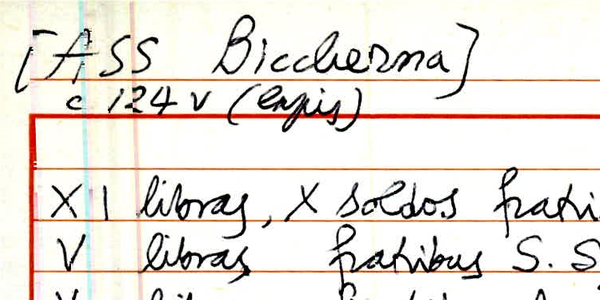 [ASS Biccherna]
c 124 v (lapis)
XI libras, X soldos fratri
V libras fratribus S. S